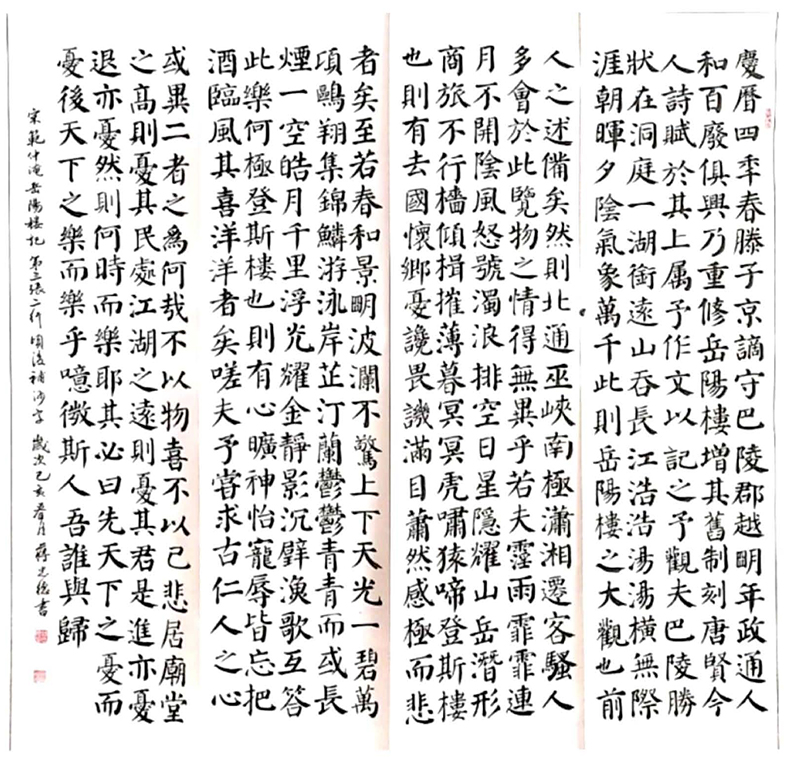 慶曆四年春滕子京謫守巴陵郡越明年政通人
和百廢俱興乃重修岳陽樓增其舊制刻唐賢今
人詩賦於其上属予作文以記之予觀夫巴陵勝
狀在洞庭一湖銜遠山吞長江浩浩湯湯橫無際
涯朝暉夕陰氣象萬千此則岳陽樓之大觀也前
人之述備矣然則北通巫峽南極瀟湘遷客騷人
多會於此覽物之情得無異乎若夫霪雨霏霏連
月不開陰風怒號濁浪排空日星隱耀山岳潛形
商旅不行檣傾楫摧薄暮冥冥虎嘯猿啼登斯樓
也則有去國懷鄉憂讒畏譏滿目蕭然感極而悲
者矣至若春和景明波瀾不驚上下天光一碧萬
項鷗翔集錦鱗游泳岸芷汀蘭鬱鬱青青而或長
煙一空皓月千里浮光耀金靜影沉璧漁歌互答
此樂何極登斯樓也則有心曠神怡寵辱皆忘把
酒臨風其喜洋洋者矣嗟夫予嘗求古仁人之心
或異二者之為何哉不以物喜不以己悲居廟堂
之高則憂其民處江湖之遠則憂其君是進亦憂
退亦憂然則何時而樂耶其必曰先天下之憂而
憂後天下之樂而樂乎噫微斯人吾誰與歸
宋範仲淹岳陽樓記 第三張二行頃後補沙字 歲次己亥春月 書